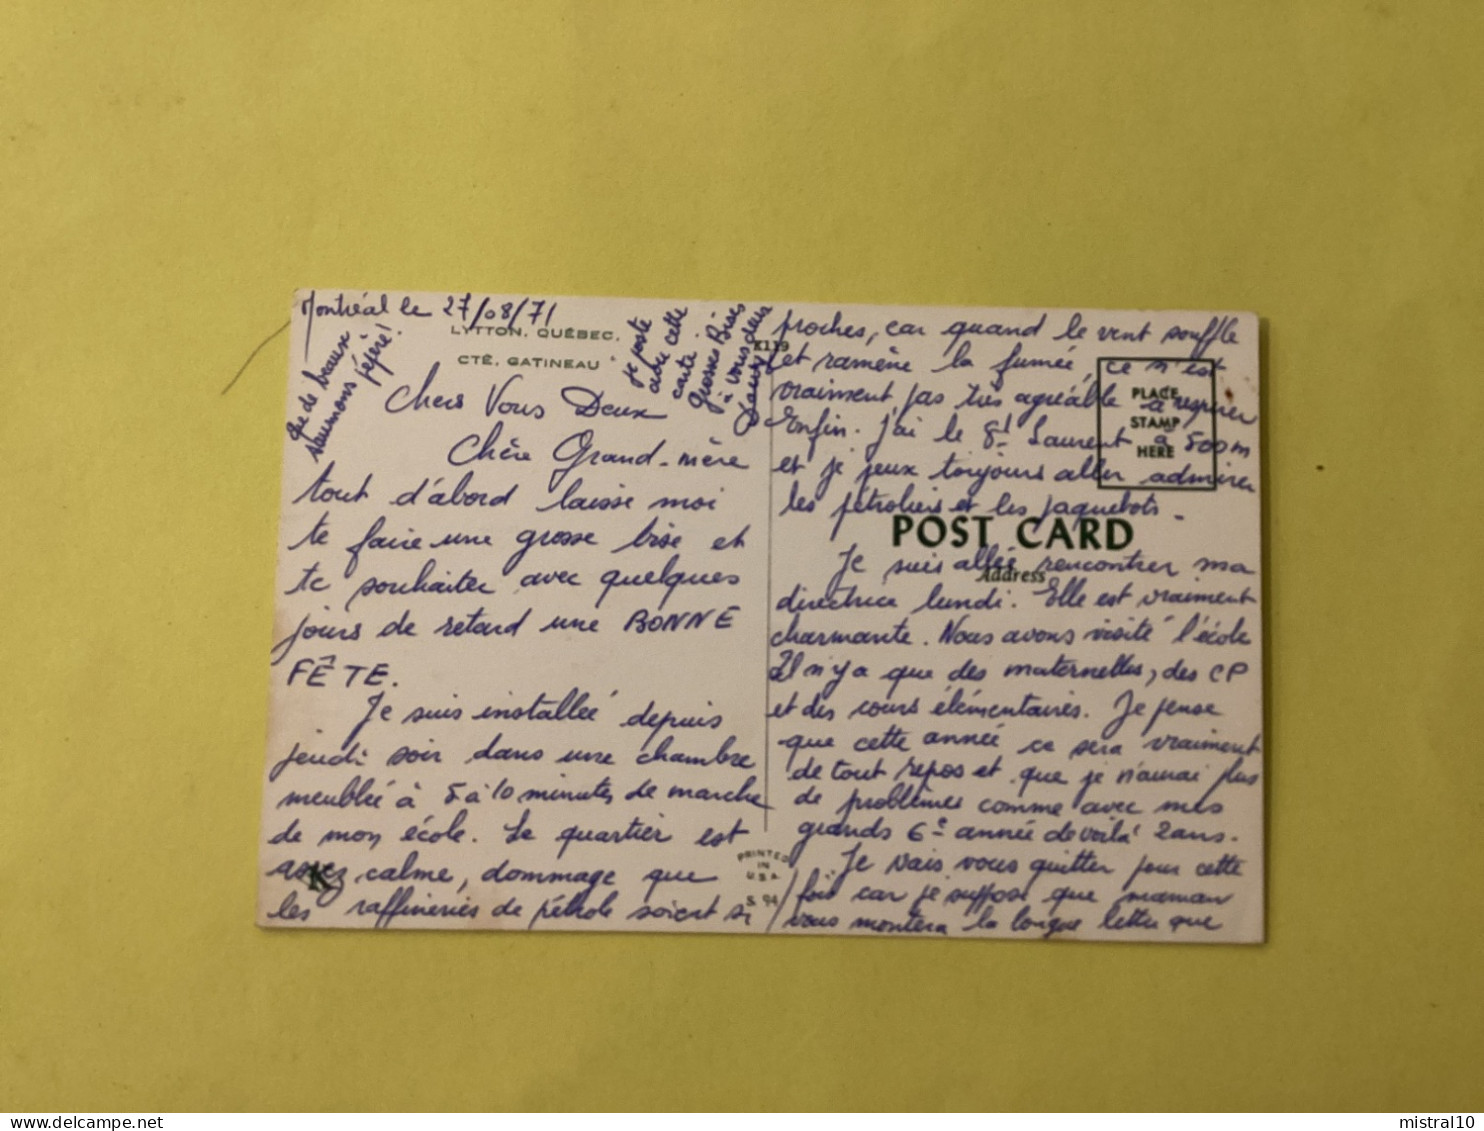 Montréal le 27/08/71
LYTTON, QUÉBEC,
CTÉ, GATINEAU
Chers Vous Deux
Chère Grand-mère
tout d'abord laisse moi
te faire une grosse bise et
te souhaiter avec quelques
jours de retard une BONNE
FÊTE.
Je suis installée depuis
jeudi soir dans une chambre
meublée à 5 à 10 minutes de marche
de mon école. Le quartier est
assez calme, dommage que
les raffineries de pétrole soient si
K
PRINTED
IN
U.S.A.
S 94
K119
proches, car quand le vent souffle
et ramène la fumée, ce n'est
vraiment pas très agréable à respirer
Enfin. j'ai le St Laurent à 500m
et je peux toujours aller admirer
les pétroliers et les paquebots.
PLACE
STAMP
HERE
POST CARD
Address
Je suis allée rencontrer ma
directrice lundi. Elle est vraiment
charmante. Nous avons visité l'école
Il n'y a que des maternelles, des CP
et des cours élémentaires. Je pense
que cette année ce sera vraiment
de tout repos et que je n'aurai plus
de problèmes comme avec mes
grands 6e année de voilà 2 ans.
Je vais vous quitter pour cette
fois car je suppose que maman
vous montera la longue lettre que
je poste
avec cette
carte.
Grosses Bises
à vous deux
Que de beaux
saumons pépère!
mistral10